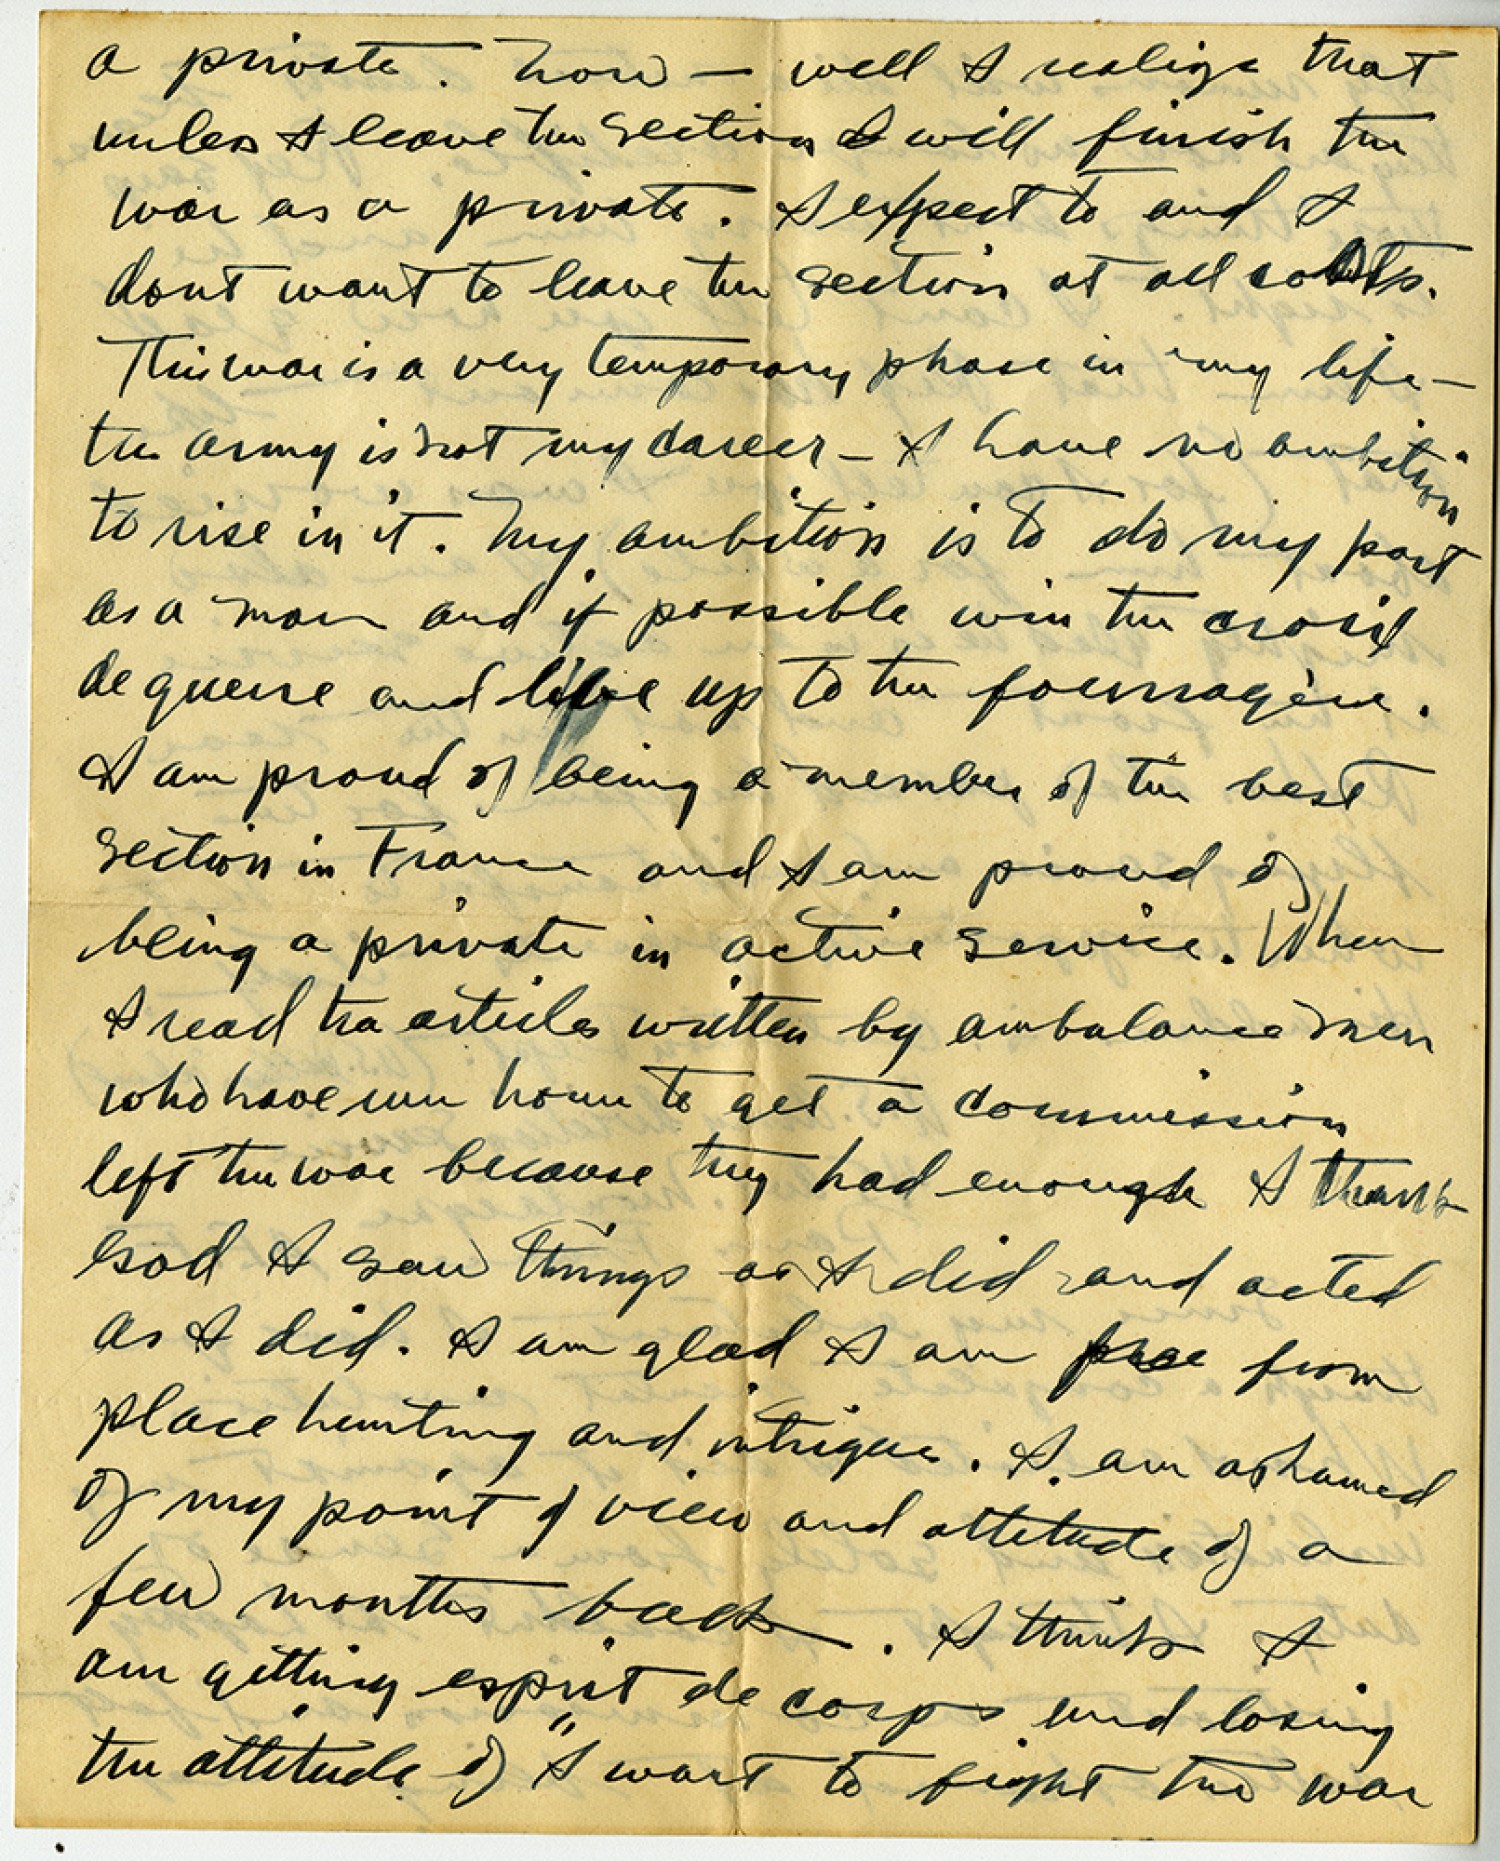 a private. Now — well I realize that
unless I leave the section I will finish the
war as a private. I expect to and I
dont want to leave the section at all costs.
This war is a very temporary phase in my life —
the army is not my career — I have no ambition
to rise in it. My ambition is to do my part
as a man and if possible win the croix
de guerre and live up to the fourragère.
I am proud of being a member of the best
section in France and I am proud of
being a private in active service. When
I read the articles written by ambulance men
who have run home to get a commission
left the war because they had enough I thank
God I saw things as I did and acted
as I did. I am glad I am free from
place hunting and intrigue. I am ashamed
of my point of view and attitude of a
few months back. I think I
am getting esprit de corps and losing
the attitude of "I want to fight the war